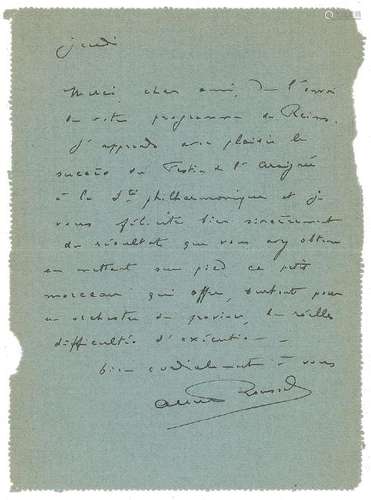 jeudi
Merci, cher ami, de l'envoi
de votre programme de Reims.
J'apprends avec plaisir le
succès du Festin de l'Araignée
à la Sté philharmonique et je
vous félicite bien sincèrement
du résultat que vous avez obtenu
en mettant sur pied ce petit
morceau qui offre, surtout pour
un orchestre de province, de réelles
difficultés d'exécution –
bien cordialement à vous
Albert Roussel